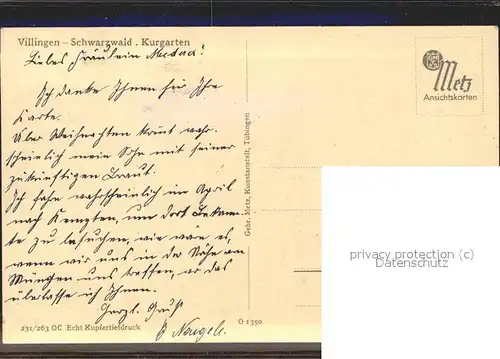 Villingen – Schwarzwald . Kurgarten
Liebes Fräulein
Ich danke Ihnen für Ihre
Karte.
Über Weihnachten kommt wahr-
scheinlich mein Sohn mit seiner
zukünftigen Braut.
Ich fahre wahrscheinlich im April
nach Kempten, um dort Bekann-
te zu besuchen, wie wäre es,
wenn wir uns in der Nähe von
München uns treffen, das
überlasse ich Ihnen.
Herzl. Gruß
231/263 OC Echt Kupfertiefdruck
G 1350
Gebr. Metz, Kunstanstalt, Tübingen
Metz
Ansichtskarten
privacy protection (c)
Datenschutz